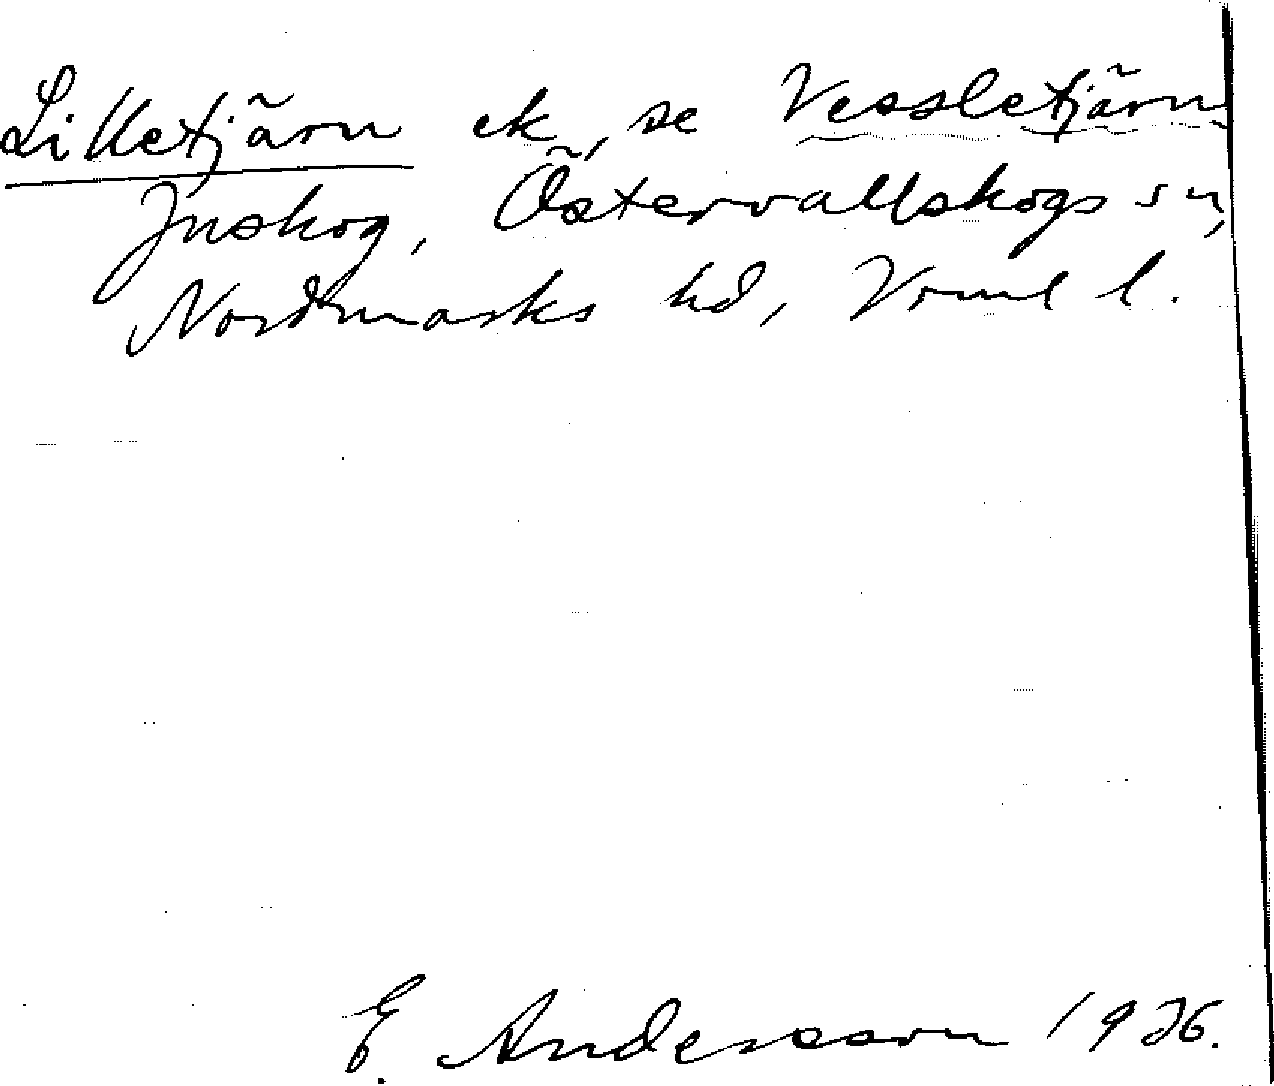 Lilletjärn ek, se Vessletjärn
Inskog, Östervallskogs sn,
Nordmarks hd, Vrml l.
E. Andersson 1926.